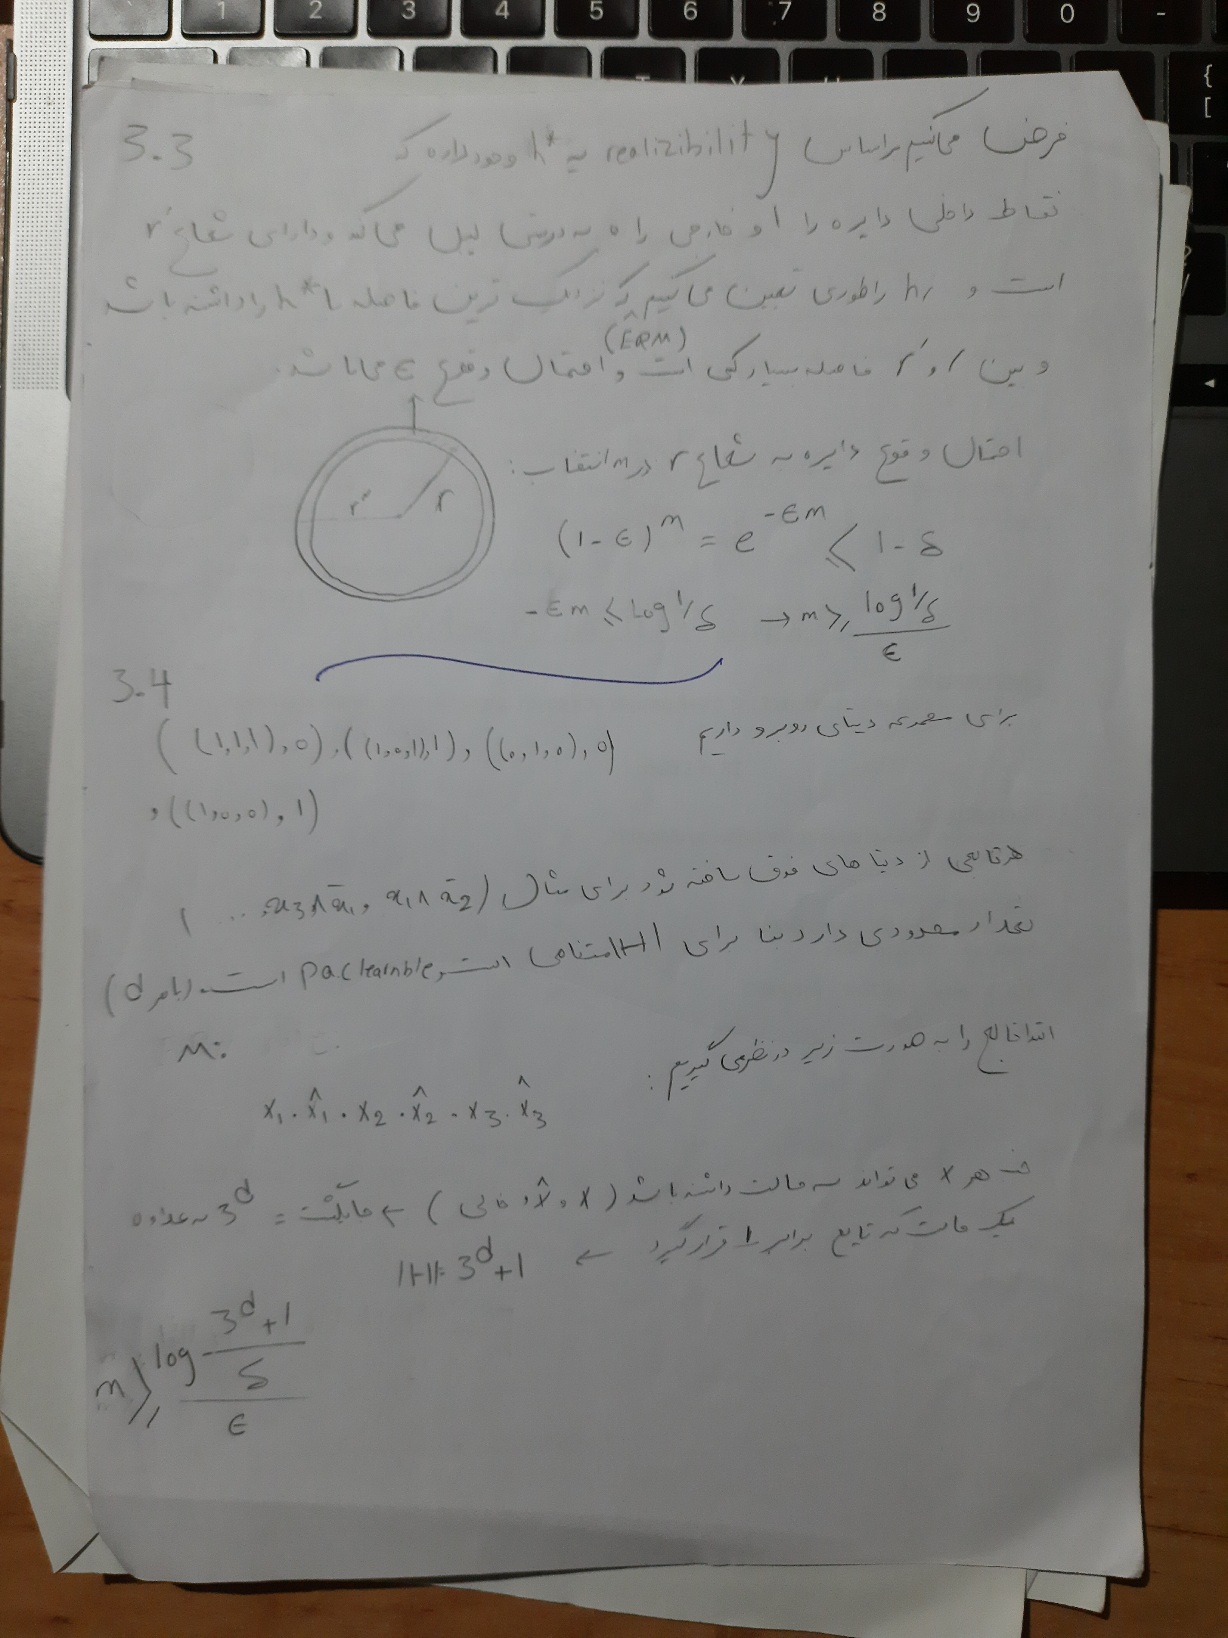 1 2 3 4 5 6 7 8 9 0 -
{
[
3.3
فرض میکنیم براساس realizibility یه h* وجود داره که
نقاط داخلی دایره را 1 و خارجی را 0 به درستی لیبل می‌کند و دارای شعاع r*
است و hr را طوری تعیین می‌کنیم که نزدیک ترین فاصله با h* را داشته باشد
(ERM)
و بین r و r* فاصله بسیار کمی است و احتمال وقوع ϵ می‌باشد.
احتمال وقوع دایره به شعاع r در m انتخاب:
r* r
(1-ϵ)^m = e^{-ϵm} ⩽ 1-δ
-ϵm ⩽ log 1/δ → m ⩾ (log 1/δ)/ϵ
3.4
برای مجموعه دیتای روبرو داریم
((1,1,1),0), ((1,0,1),1), ((0,1,0),0)
, ((1,0,0),1)
هر تابعی از دیتا های فوق ساخته شود برای مثال (a3∧ā1, a1∧ā2 ...
تعداد محدودی دارد بنا برای |H| متناهی است، pac learnble است. (d
m:
ابتدا تابع را به صورت زیر در نظر می گیریم:
x1 . x̂1 . x2 . x̂2 . x3 . x̂3
هر x می تواند سه حالت داشته باشد (x, x̂, خالی) ← = 3^d به علاوه
یک حالت که تابع برابر 1 قرار گیرد ← |H|= 3^d+1
m ⩾ (log (3^d+1)/δ)/ϵ